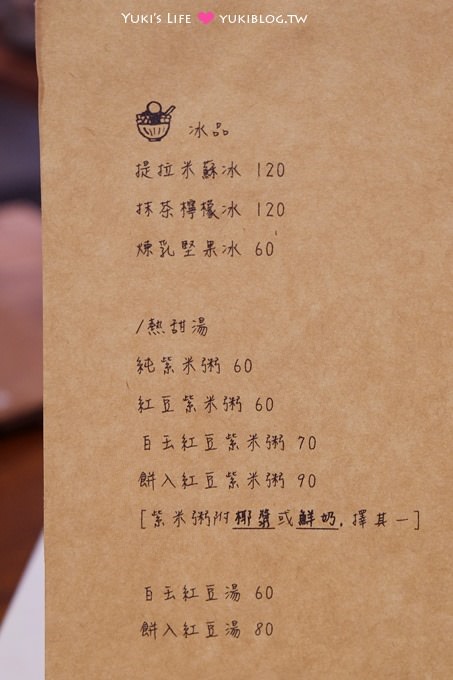 YUKI'S LIFE ♥ YUKIBLOG.TW
冰品
提拉米蘇冰 120
抹茶檸檬冰 120
煉乳堅果冰 60
/熱甜湯
純紫米粥 60
紅豆紫米粥 60
白玉紅豆紫米粥 70
餅入紅豆紫米粥 90
[紫米粥附椰漿或鮮奶,擇其一]
白玉紅豆湯 60
餅入紅豆湯 80